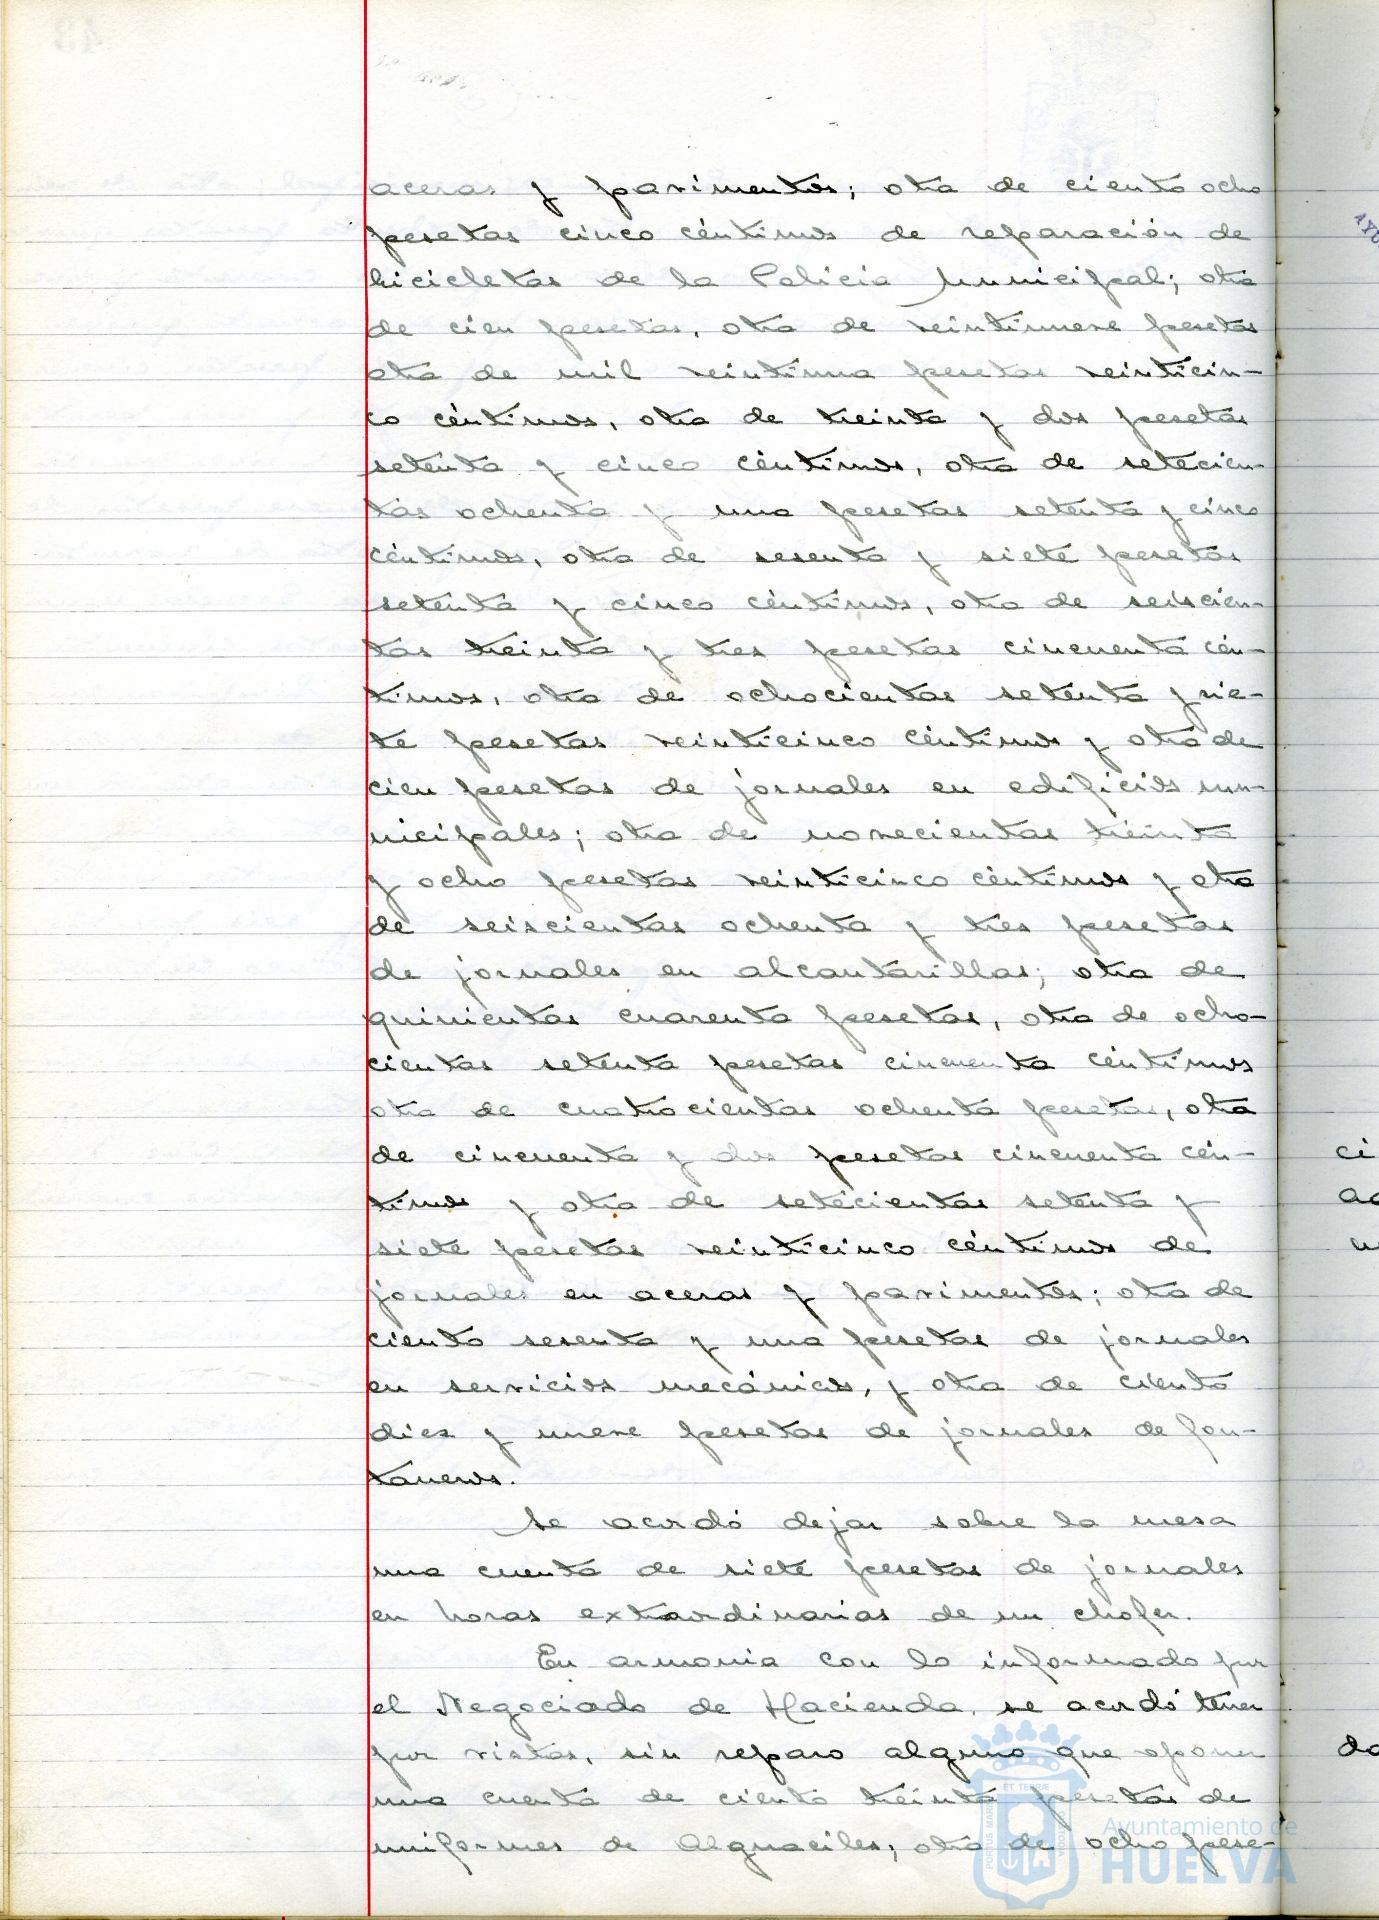 aceras y pavimentos; otra de ciento ocho
pesetas cinco céntimos de reparación de
bicicletas de la Policia Municipal; otra
de cien pesetas, otra de veintinueve pesetas
otra de mil veintiuna pesetas veinticin-
co céntimos, otra de treinta y dos pesetas
setenta y cinco céntimos, otra de setecien-
tas ochenta y una pesetas setenta y cinco
céntimos, otra de sesenta y siete pesetas
setenta y cinco céntimos, otra de seiscien-
tas treinta y tres pesetas cincuenta cén-
timos, otra de ochocientas setenta y sie-
te pesetas veinticinco céntimos y otra de
cien pesetas de jornales en edificios mu-
nicipales; otra de novecientas treinta
y ocho pesetas veinticinco céntimos y otra
de seiscientas ochenta y tres pesetas
de jornales en alcantarillas; otra de
quinientas cuarenta pesetas, otra de ocho-
cientas setenta pesetas cincuenta céntimos
otra de cuatrocientas ochenta pesetas, otra
de cincuenta y dos pesetas cincuenta cén-
timos y otra de setecientas setenta y
siete pesetas veinticinco céntimos de
jornales en aceras y pavimentos; otra de
ciento sesenta y una pesetas de jornales
en servicios mecánicos, y otra de ciento
diez y nueve pesetas de jornales de fon-
taneros.
Se acordó dejar sobre la mesa
una cuenta de siete pesetas de jornales
en horas extraordinarias de un chofer.
En armonia con lo informado por
el Negociado de Hacienda, se acordó tener
por vistas, sin reparo alguno que oponer
una cuenta de ciento treinta pesetas de
uniformes de Alguaciles; otra de ocho pese-
ci
da
Ayuntamiento de
HUELVA